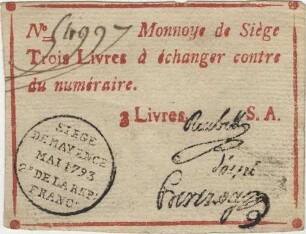 No 54997 Monnoye de Siège
Trois Livres à échanger contre
du numéraire.
3 Livres. S. A.
SIEGE
DE MAYENCE
MAI 1793
2e DE LA REP.
FRANC.